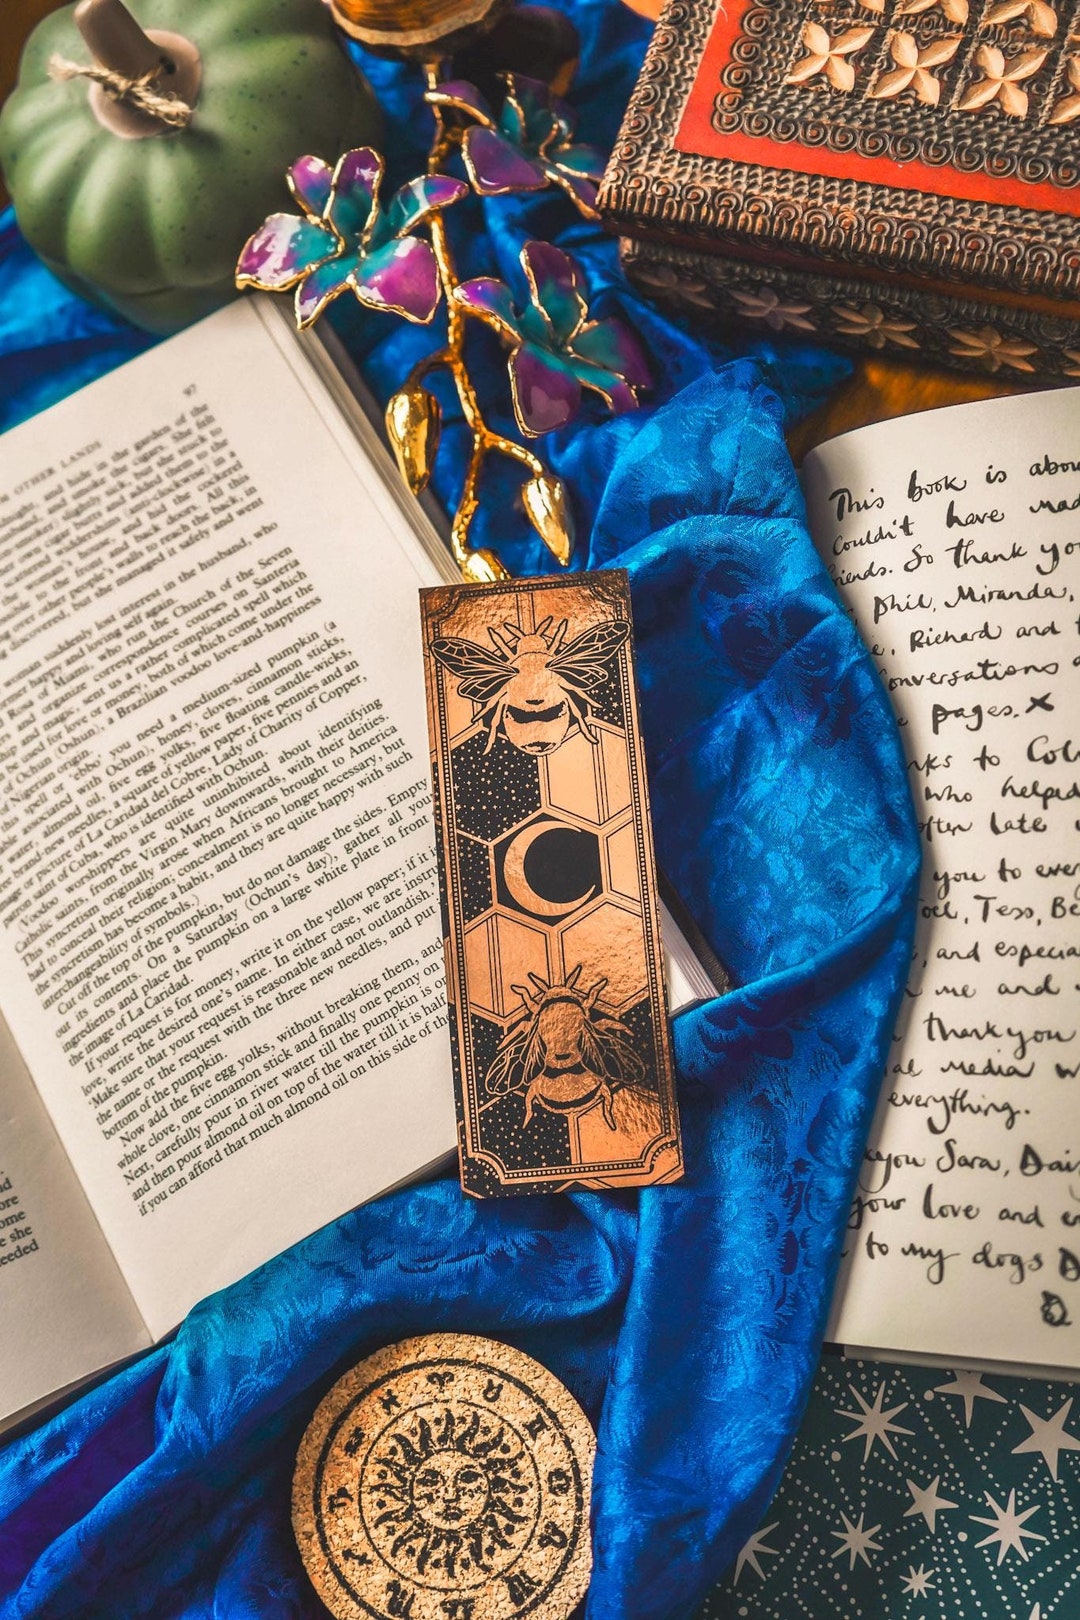 97
OTHER LANDS
garden of the
the cigars. She felt
but she stuck to
and added them to the
the cockerel
ears. All this
other people's walls to reach the back, in
discovered, but she managed it safely and went
woman suddenly lost interest in the husband, who
happy and loving self again.
Rosa of Miami, who run the Church of the Seven
and organize correspondence courses on Santeria
and magic, sent us a rather complicated spell which
used for love or money; both of which come under the
of Ochun (Oshun), a Brazilian voodoo love-and-happiness
of Nigerian origin.
this spell or 'ebbo' you need a medium-sized pumpkin (a
associated with Ochun), honey, cloves, cinnamon sticks,
water, almond oil, five egg yolks, five floating candle-wicks,
brand-new needles, a square of yellow paper, five pennies and an
image or picture of La Caridad del Cobre, Lady of Charity of Copper,
patron saint of Cuba, who is identified with Ochun.
(Voodoo worshippers are quite uninhibited about identifying
Catholic saints, from the Virgin Mary downwards, with their deities.
This syncretism originally arose when Africans brought to America
had to conceal their religion; concealment is no longer necessary, but
the syncretism has become a habit, and they are quite happy with such
interchangeability of symbols.)
Cut off the top of the pumpkin, but do not damage the sides. Empty
out its contents. On a Saturday (Ochun's day), gather all your
ingredients and place the pumpkin on a large white plate in front
the image of La Caridad.
If your request is for money, write it on the yellow paper; if it
love, write the desired one's name. In either case, we are instru
'Make sure that your request is reasonable and not outlandish.'
the name or the request with the three new needles, and put i
bottom of the pumpkin.
Now add the five egg yolks, without breaking them, and
whole clove, one cinnamon stick and finally one penny on
Next, carefully pour in river water till the pumpkin is o
and then pour almond oil on top of the water till it is half
if you can afford that much almond oil on this side of the
ore
ome
e she
eeded
This book is abou
Couldn't have mad
friends. So thank yo
Phil, Miranda,
Richard and
onversations
pages. x
ks to Col
who helped
ften late
you to ever
Joel, Tess, Be
, and especia
me and
thankyou
al media w
everything.
kyou Sara, Dai
your love and e
to my dogs D